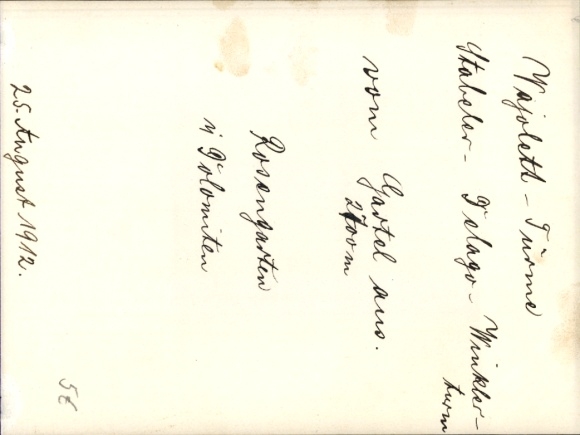 Vajolett-Türme
Stabeler- Delago- Winkler-
turm
vom Gartel aus.
2700m
Rosengarten
i/ Dolomiten
25. August 1912.
5€